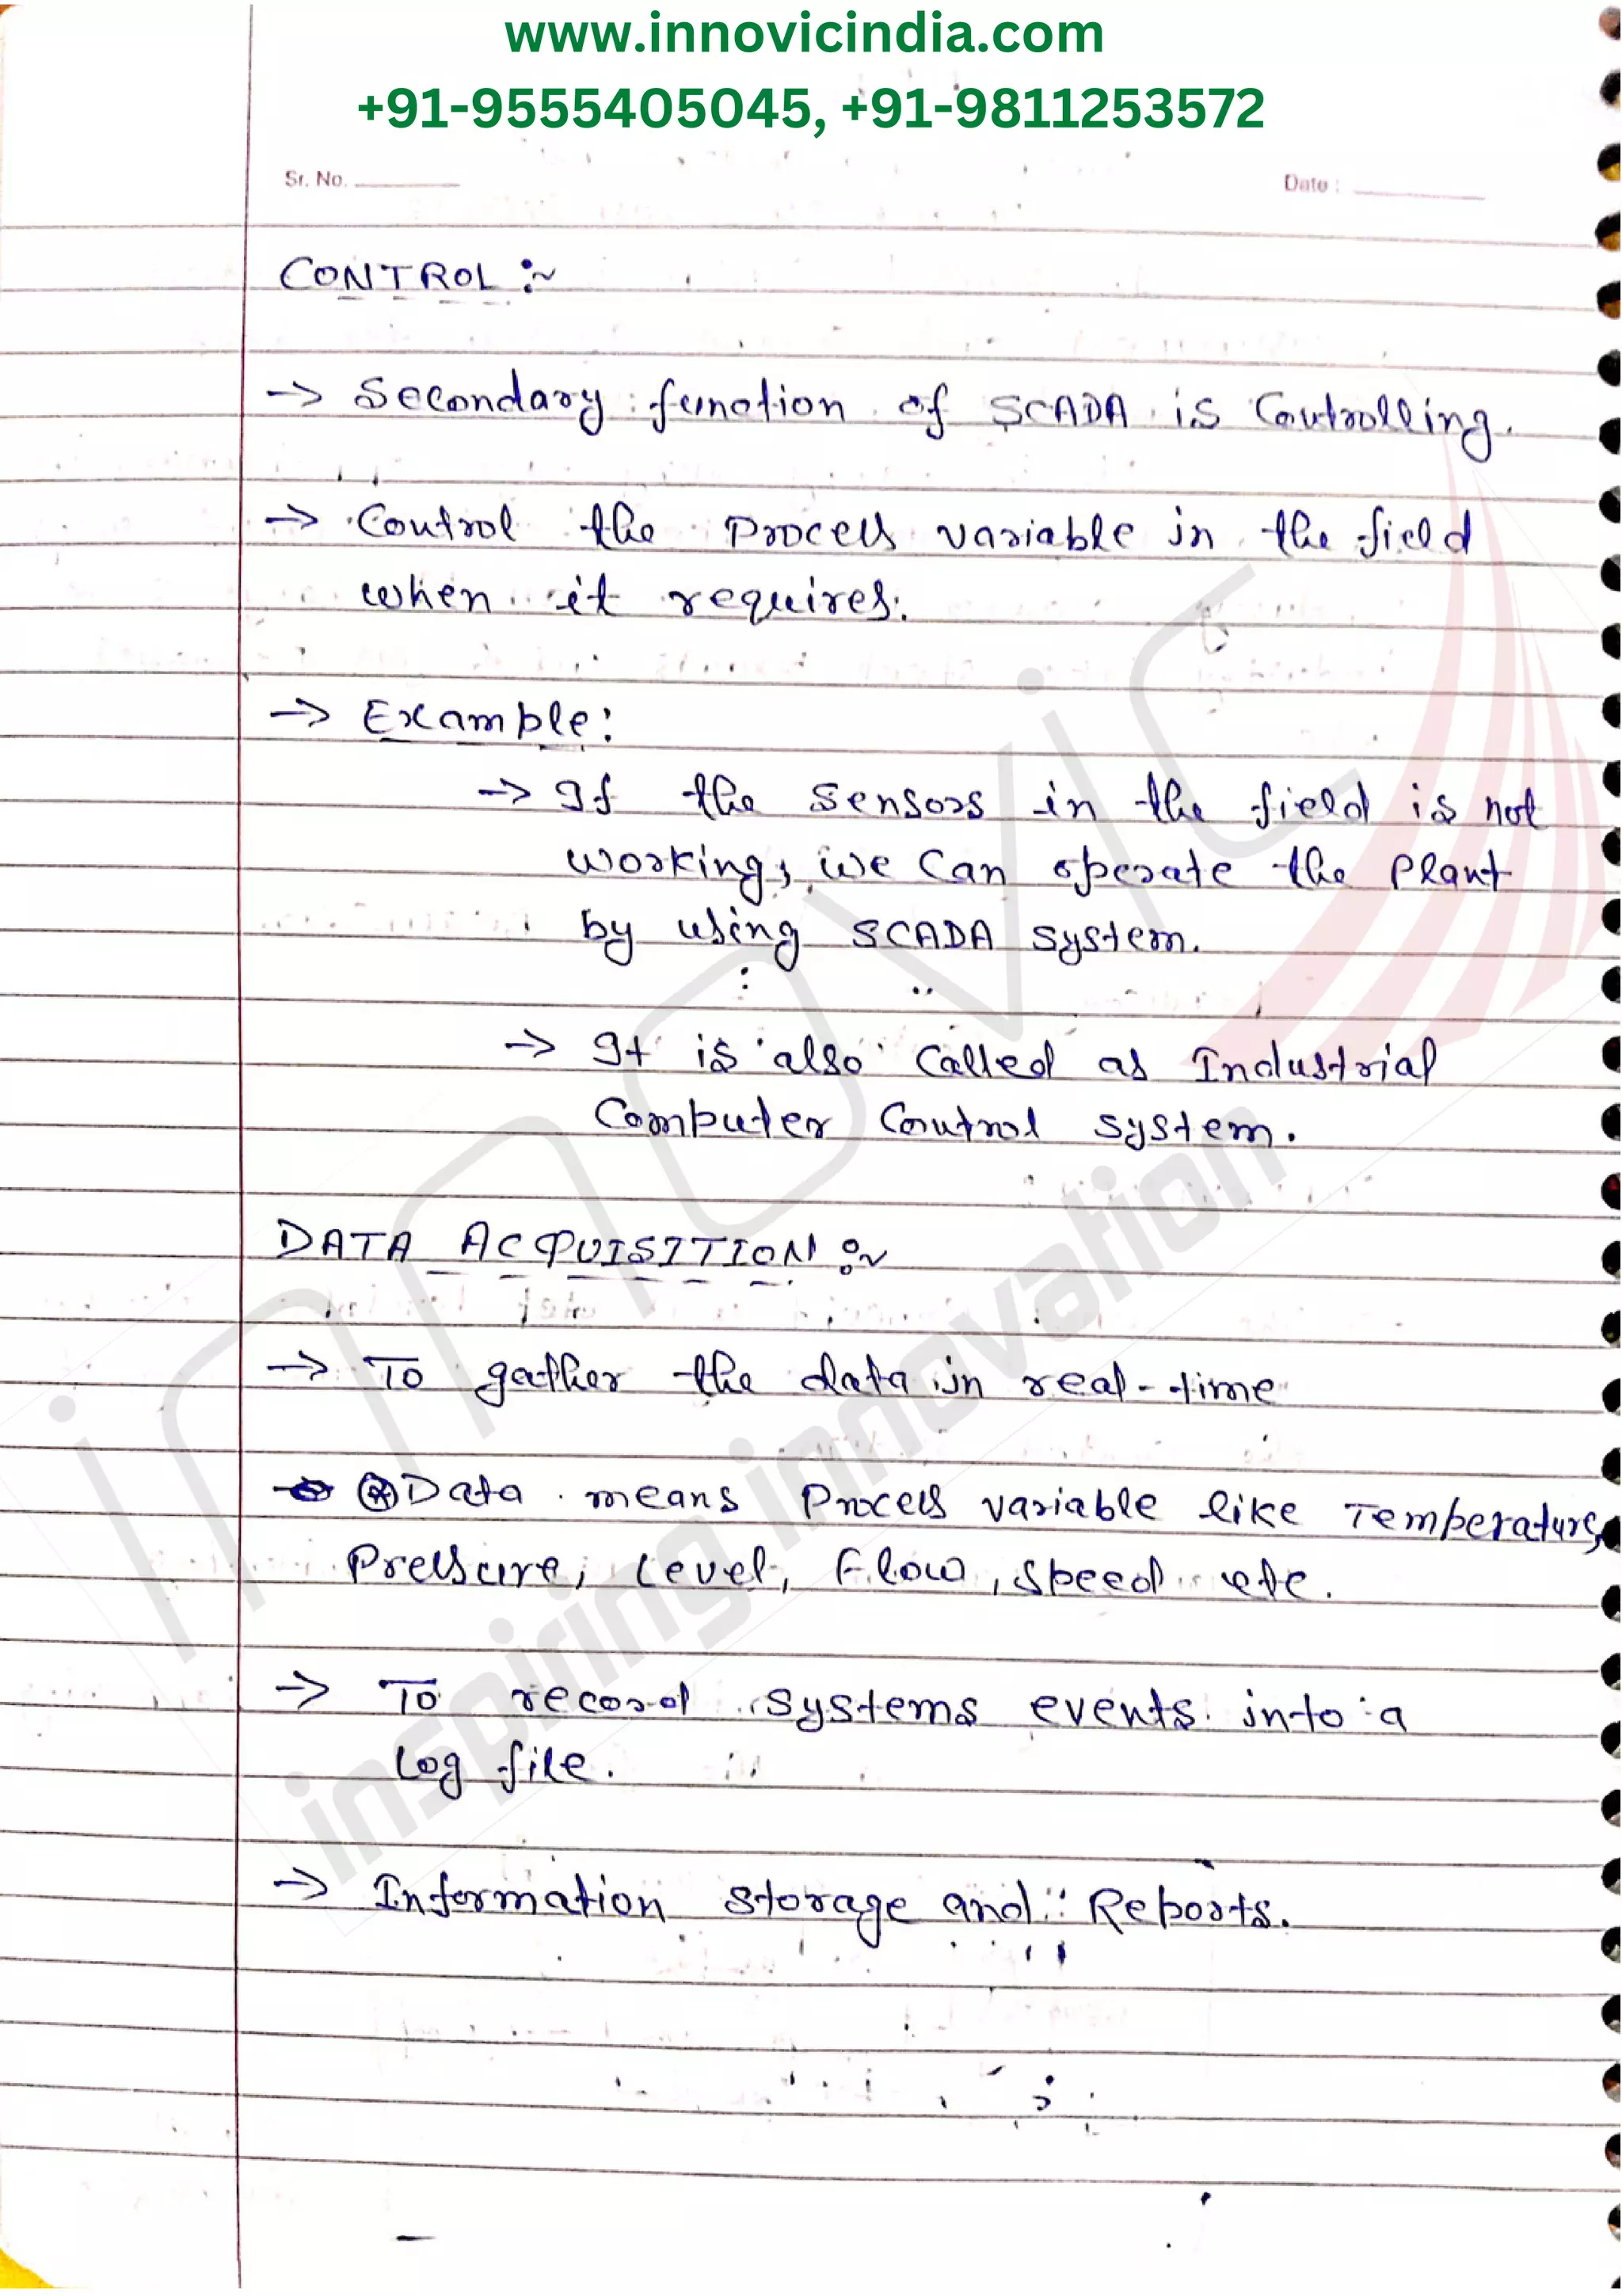 www.innovicindia.com
+91-9555405045, +91-9811253572
Sr. No.
Date :
CONTROL :~
→ Secondary function of SCADA is Controlling.
→ Control the Process variable in the field
when it requires.
→ Example:
→ If the Sensors in the field is not
working, we Can operate the Plant
by using SCADA System.
→ It is also Called as Industrial
Computer Control System.
DATA ACQUISITION :~
→ To gather the data in real-time
⊛ Data means Process variable like Temperature,
Pressure, Level, Flow, Speed etc.
→ To record Systems events into a
Log file.
→ Information Storage and Reports.
innovic
inspiring innovation